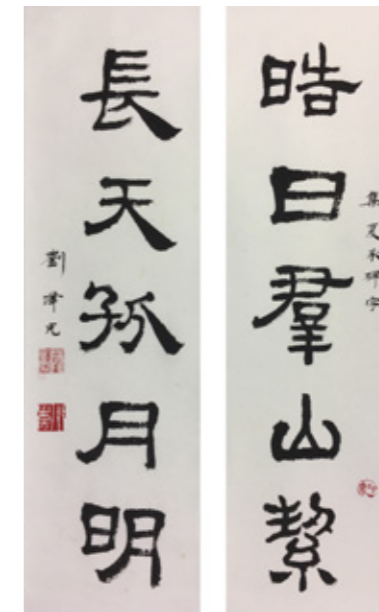 晧日羣山絜
集夏承碑字
長天孤月明
劉澤光